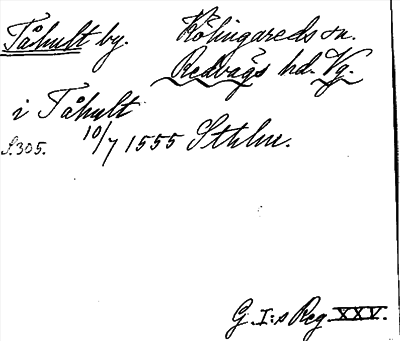 Tåhult by. Kölingareds sn.
Redvägs hd. Vg.
i Tåhult
S.305. 10/7 1555 Sthlm.
G. I:s Reg. XXV.